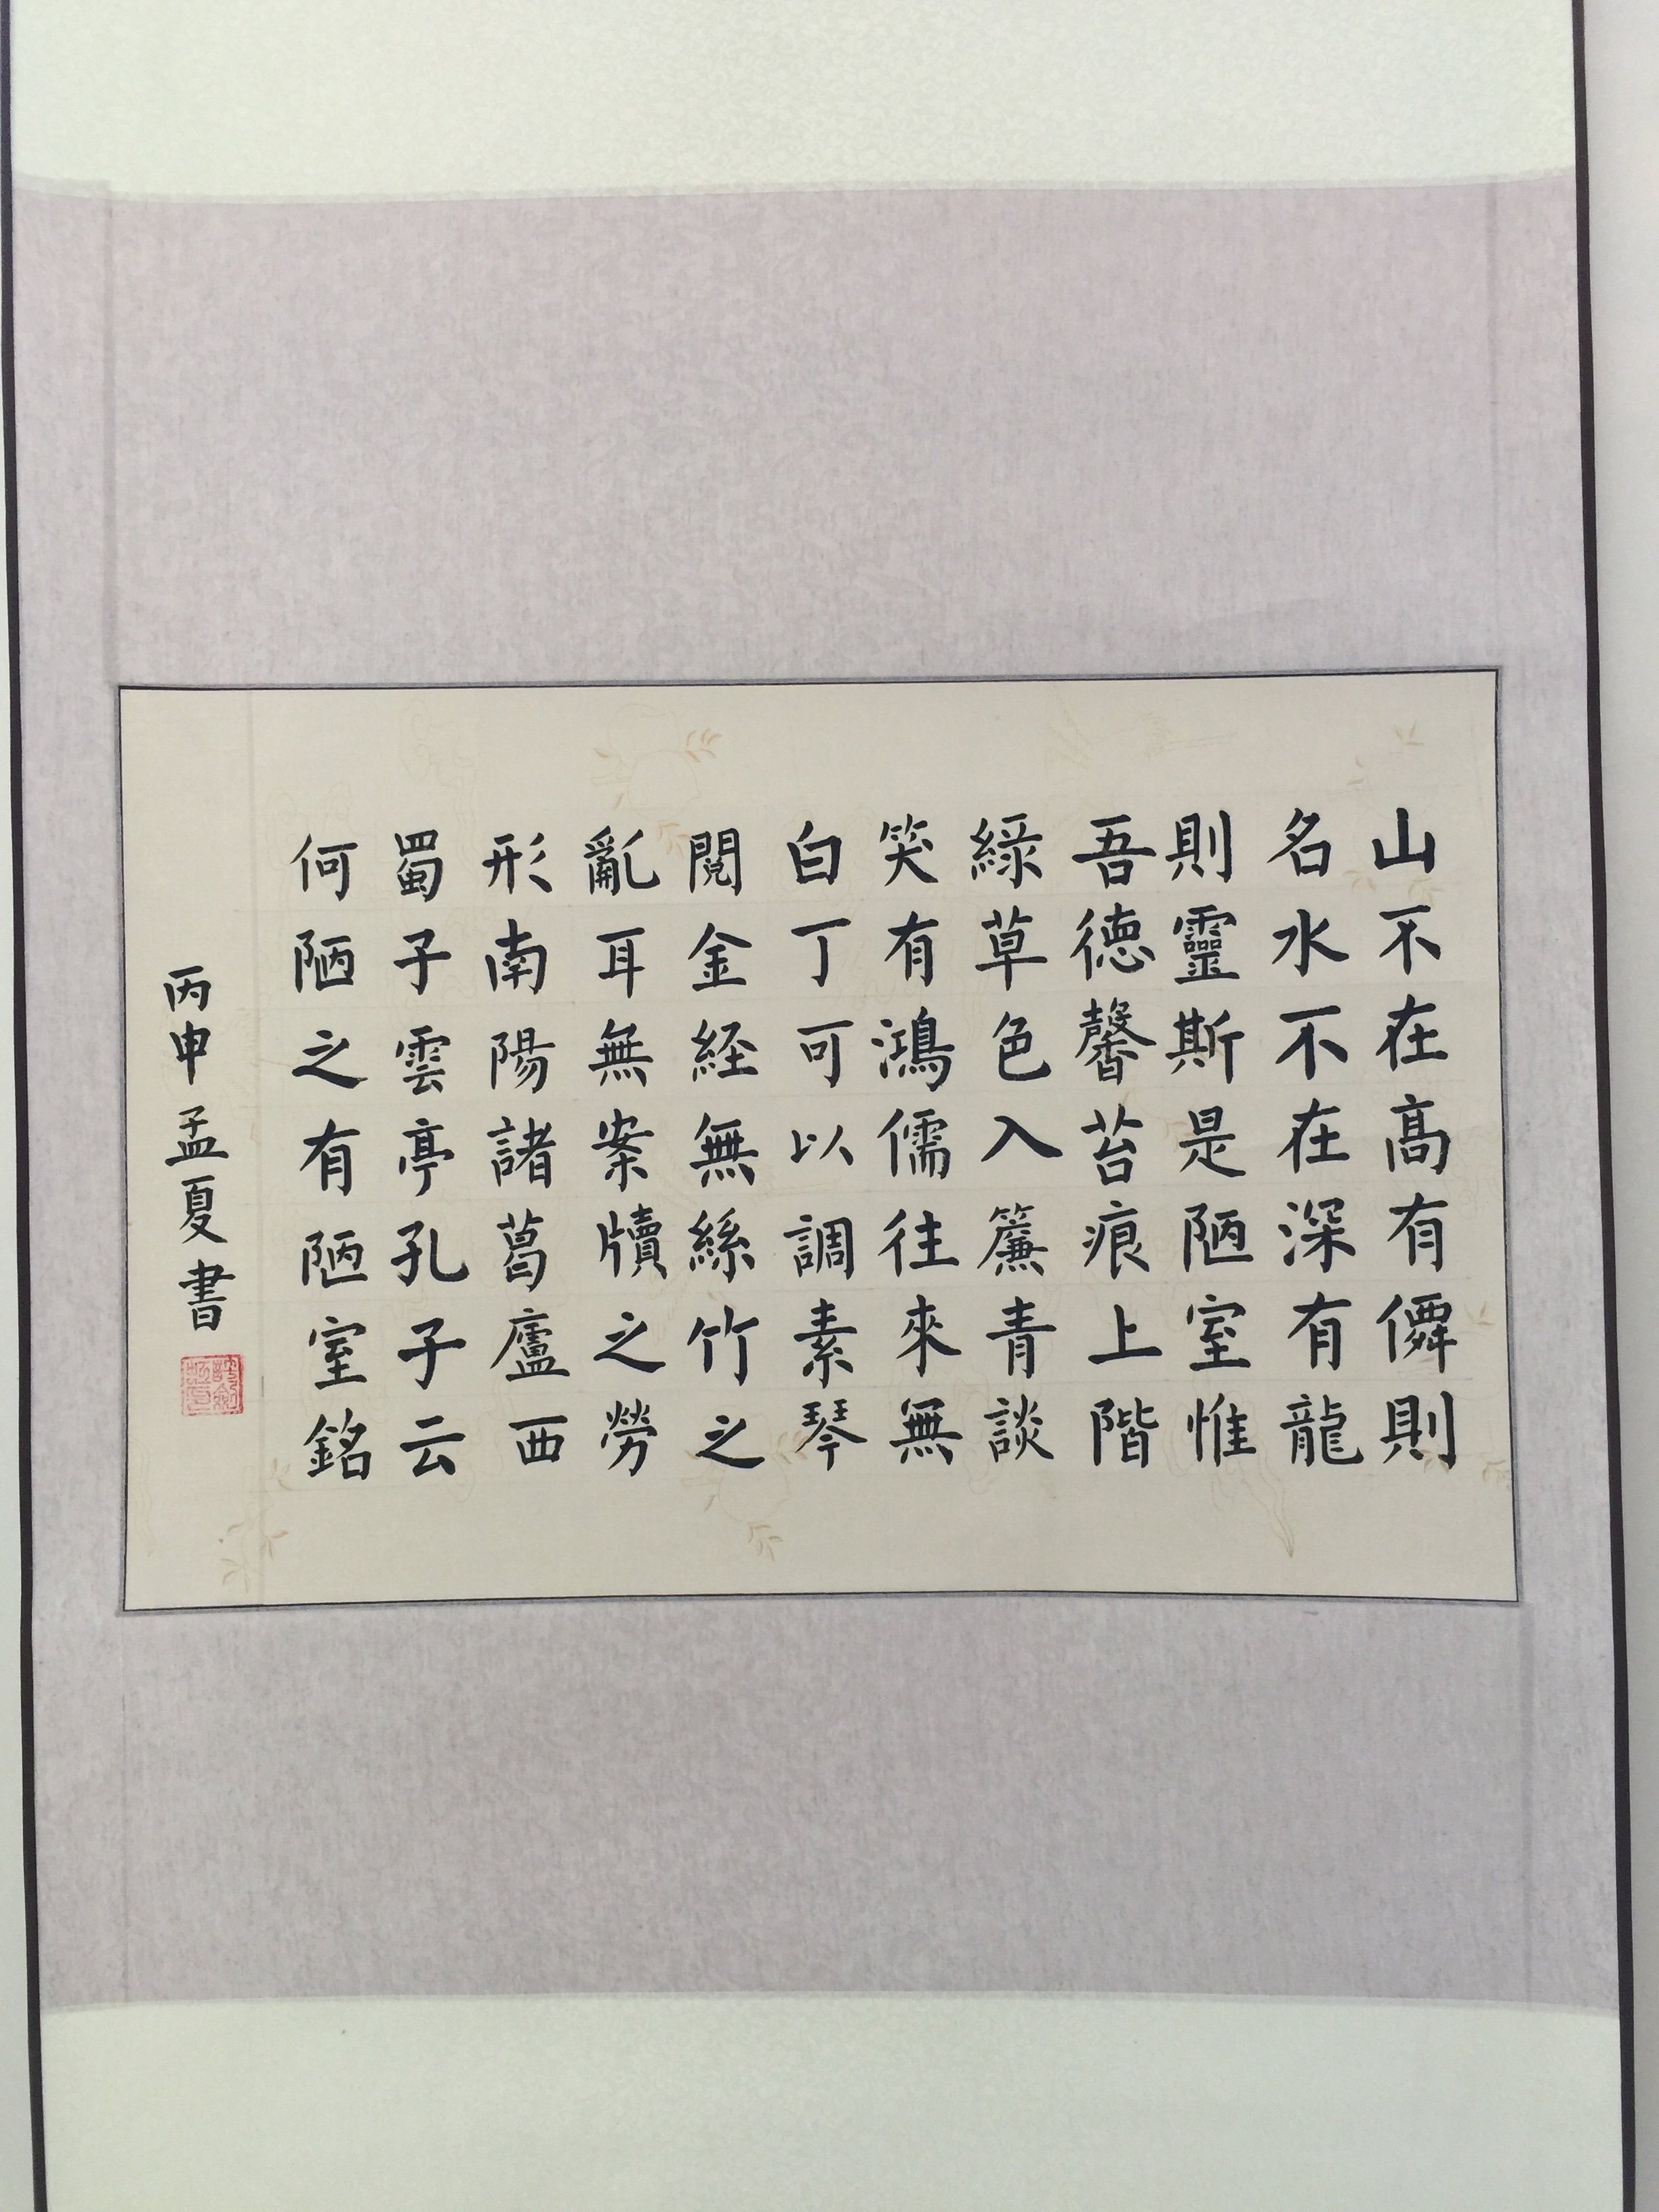 山不在高有僊則
名水不在深有龍
則靈斯是陋室惟
吾德馨苔痕上階
綠草色入簾青談
笑有鴻儒往來無
白丁可以調素琴
閱金経無絲竹之
亂耳無案牘之勞
形南陽諸葛廬西
蜀子雲亭孔子云
何陋之有陋室銘
丙申孟夏書